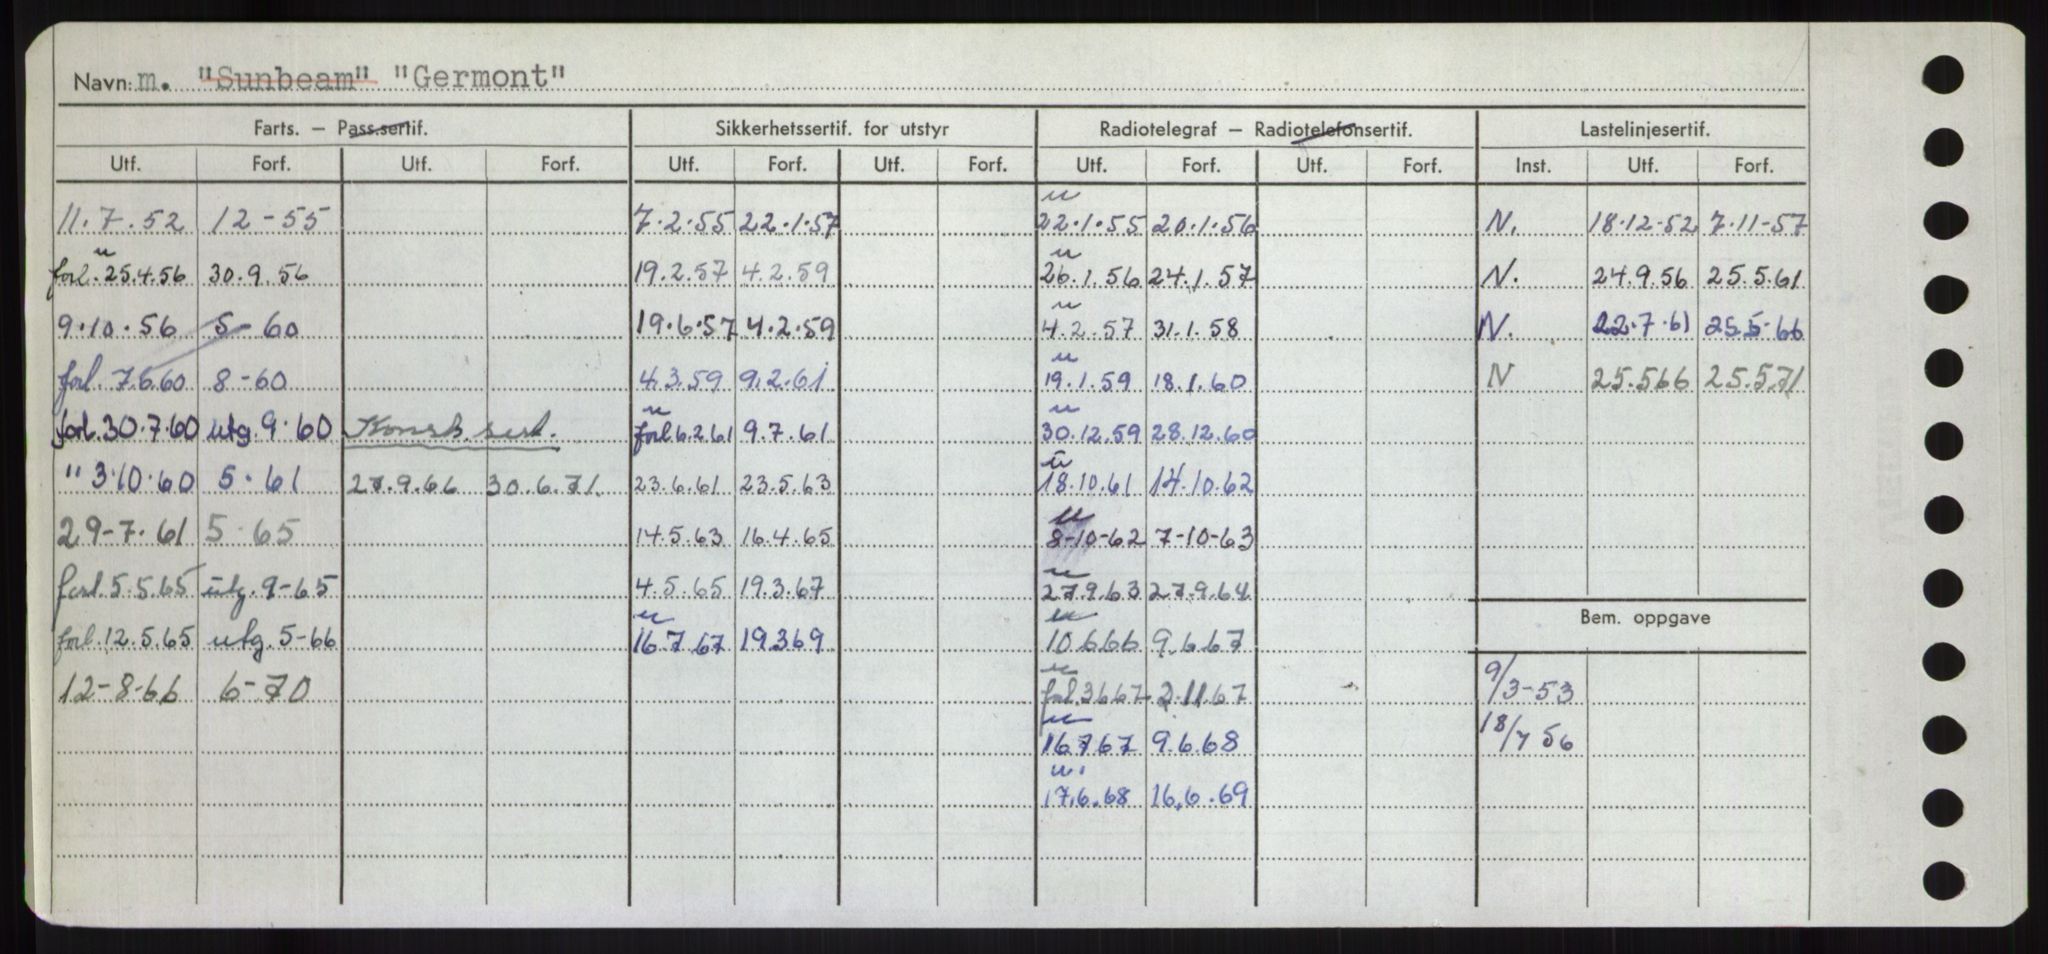 Navn: m. "Sunbeam" "Germont"
Farts. – Pass.sertif. Sikkerhetssertif. for utstyr Radiotelegraf – Radiotelefonsertif. Lastelinjesertif.
Utf. Forf. Utf. Forf. Utf. Forf. Utf. Forf. Utf. Forf. Utf. Forf. Inst. Utf. Forf.
u
11.7.52 12-55 7.2.55 22.1.57 22.1.55 20.1.56 N. 18.12-52 7.11-57
u u
forl. 25.4.56 30.9.56 19.2.57 4.2.59 26.1.56 24.1.57 N. 24.9.56 25.5.61
u
9.10.56 5-60 19.6.57 4.2.59 4.2.57 31.1.58 N. 22.7.61 25.5.66
u
forl. 7.6.60 8-60 4.3.59 9.2.61 19.1.59 18.1.60 N 25.566 25.5.71
u u
forl. 30.7.60 utg. 9.60 Konstr. sert. forl 6.2.61 9.7.61 30.12.59 28.12.60
u
" 3.10.60 5.61 27.9.66 30.6.71. 23.6.61 23.5.63 18.10.61 14.10.62
u
29-7.61 5-65 14.5.63 16.4.65 8-10-62 7-10-63
u
forl. 5.5.65 utg. 9-65 4.5.65 19.3.67 27.9.63 27.9.64
Bem. oppgave
u u
forl. 12.5.65 utg. 5-66 16.7.67 19.369 10.6.66 9.6.67
u
12-8-66 6-70 forl. 3667 2.11.67 9/3-53
u
16.767 9.6.68 18/7 56
u.
17.6.68 16.6.69